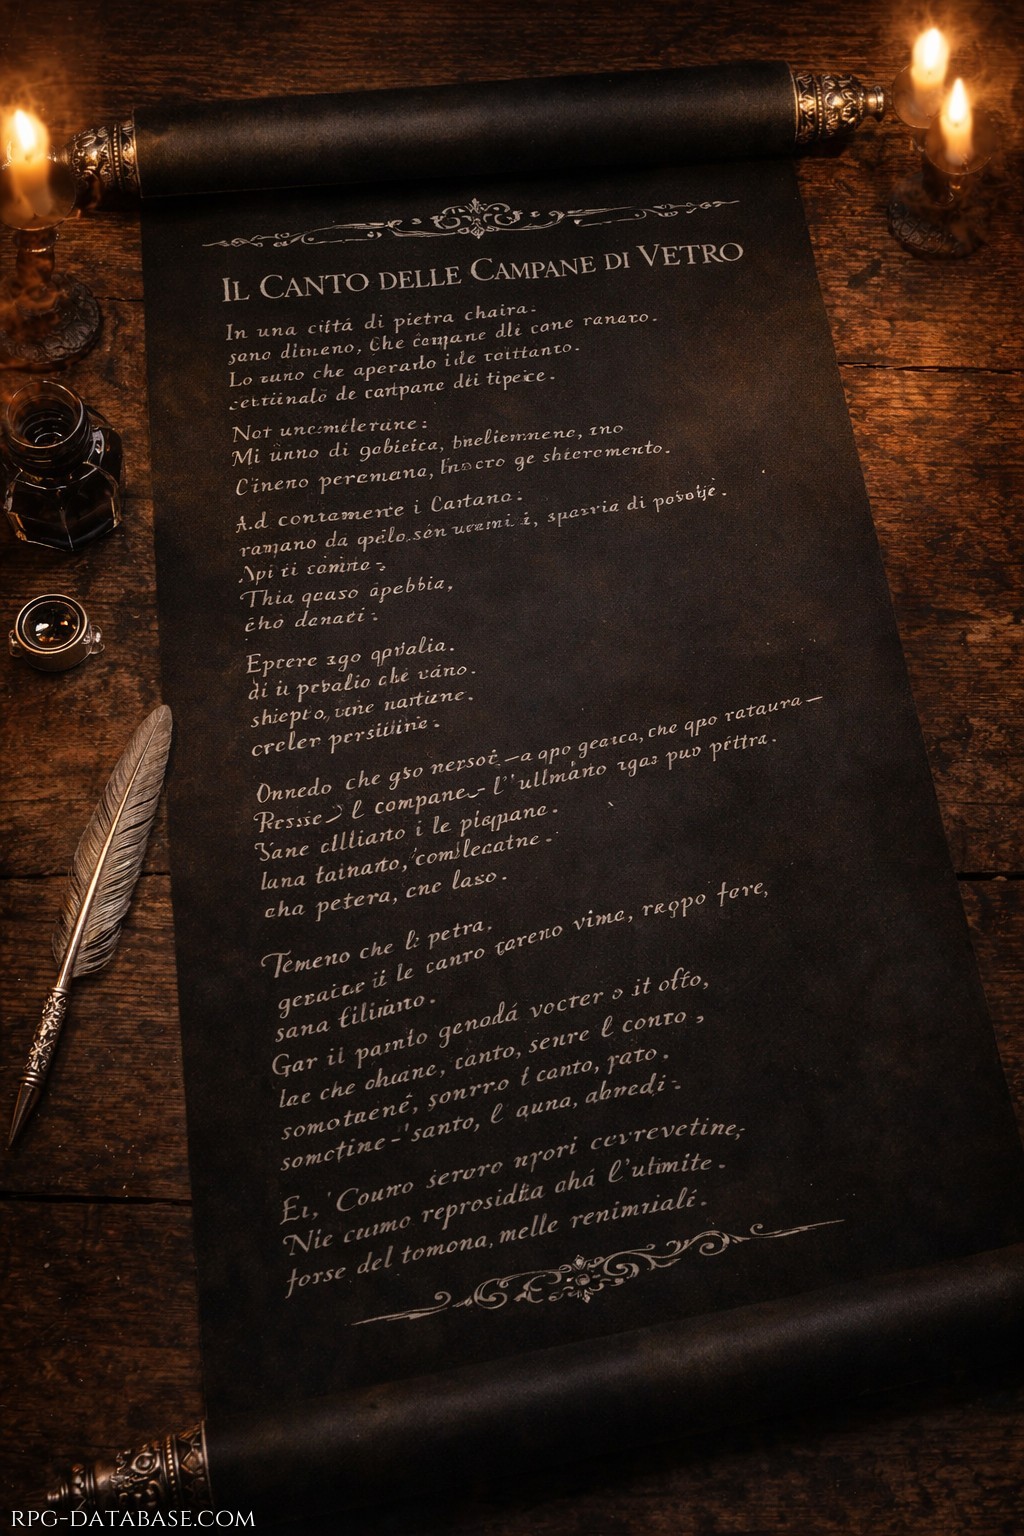 Il Canto delle Campane di Vetro
In una cittá di pietra chaira.
sano ditneno, Che campane dli cane ranaro.
Lo runo che aperardo i de roittanto.
settiinalo de campane dti tipece.
Not uncmeterune:
Mi unno di gobieica, bneliemmenc, ino
Cineno peremena, ge shicremento.
Ad contamente i Cartano:
ramano da spazria di
Thia quaso apebbia,
eho denati:
Eprere ago qpvalia.
di ii pevalio che vano.
shiepto, une nartine.
creler persiiine.
Onnedo che gso nersoi — a qpo geatca, che qpo rataura —
Ressie l compane — l' ullmano rgas puo pettra.
Sane cllliano i le pigpane.
luna tainarto, com lecatne -
cha petera, cne laso.
Temeno che le petra.
geraice ii le canro careno vime, ragpo fere,
sana tilirano.
Gar il painto genodá vocter o it offo,
lae che chuane, canto, senre l conto,
somotaené, sonrro i canto, rato.
somctine - 'santo, l auna, abnedi -
Et, ' Counro seruro nyori cevrevetine;
Nie cuumo reprosidta ahá l'utimite.
forse del tomona, melle renimrialé.
RPG-DATABASE.COM